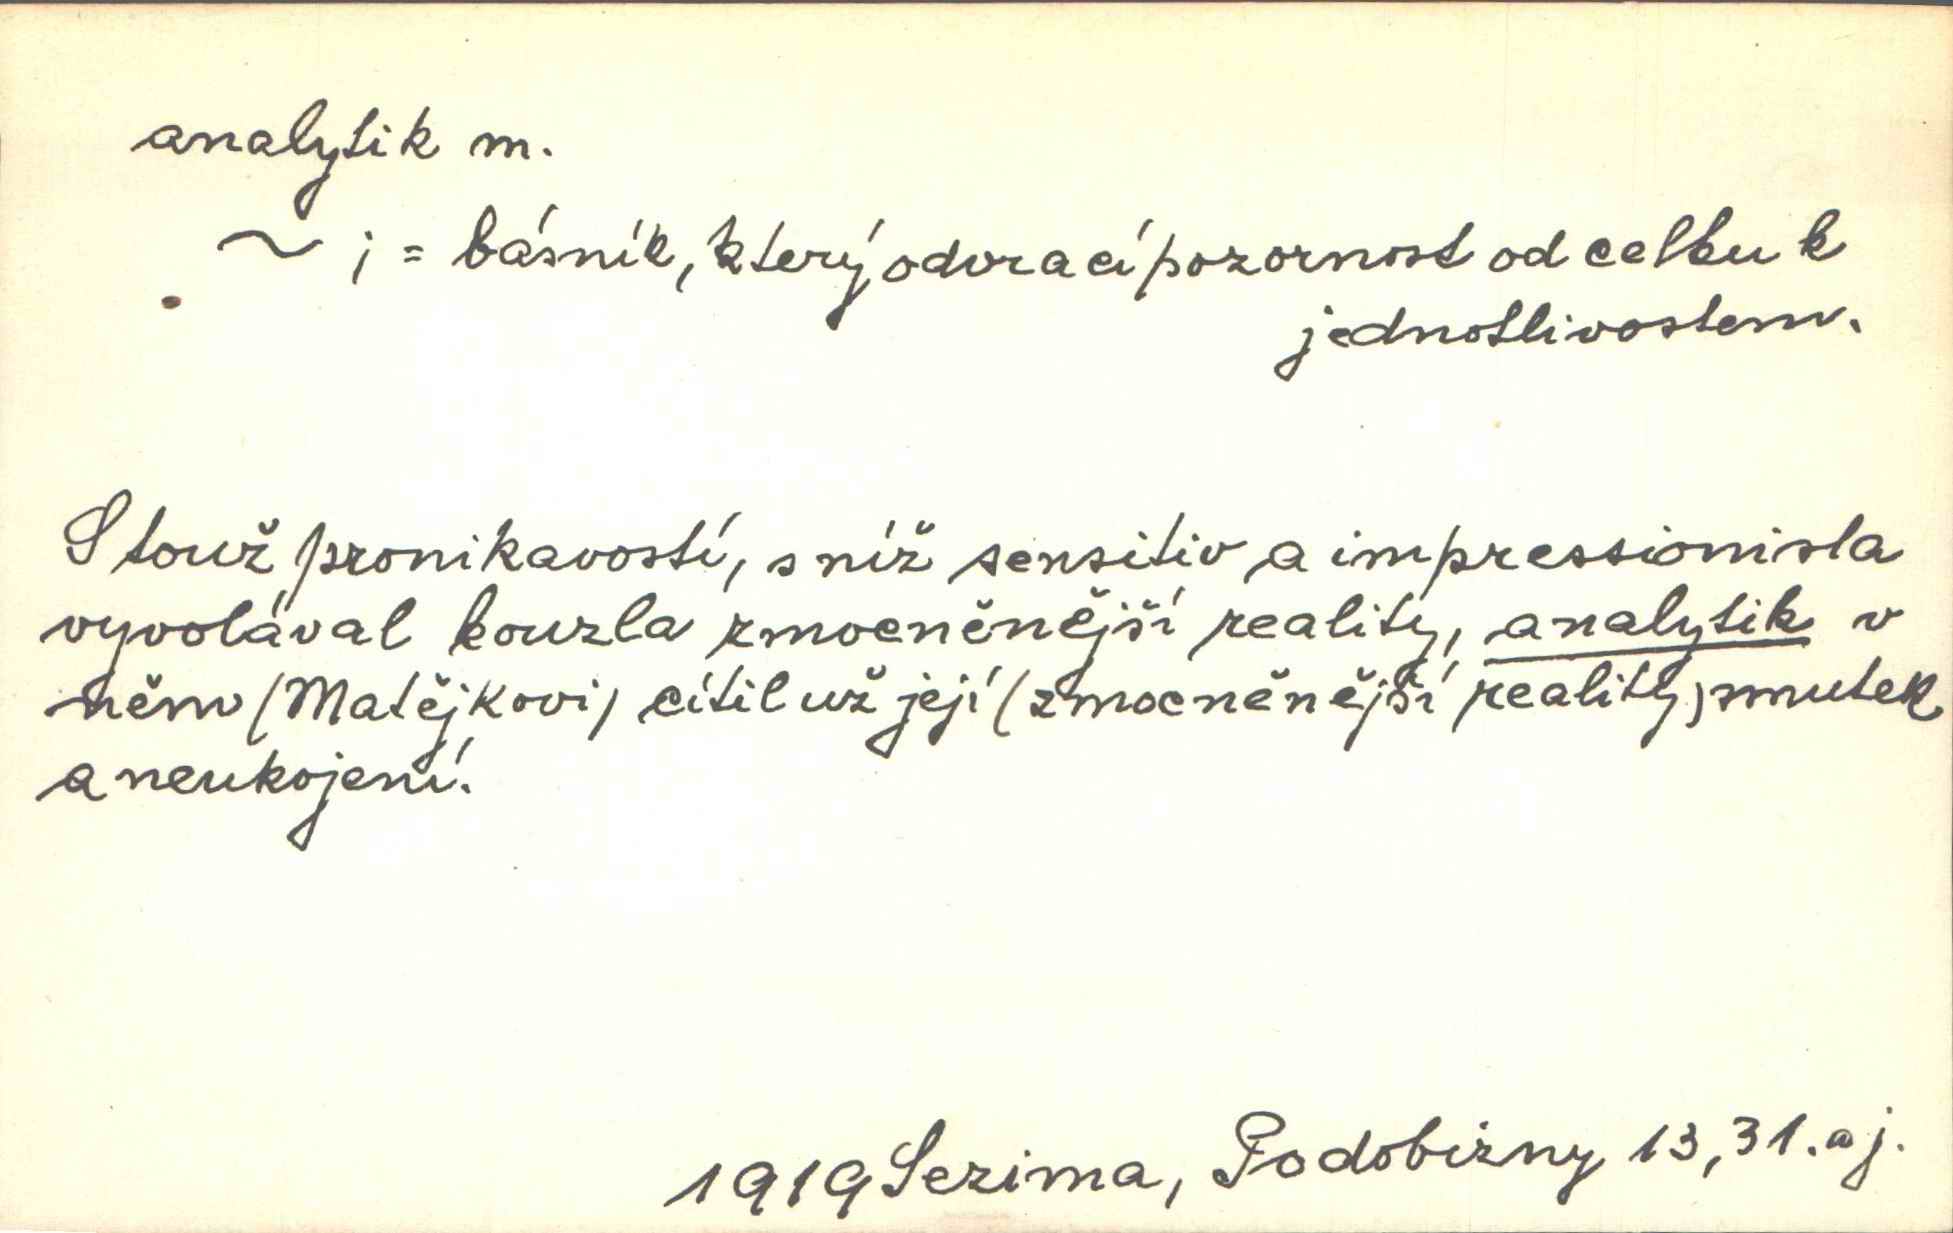 analytik m.
~ ; = básník, který odvrací pozornost od celku k
jednotlivostem.
S touž pronikavostí, s níž sensitiv a impressionista
vyvolával kouzla zmocněnější reality, analytik v
něm (Matějkovi) cítil už její (zmocněnější reality) smutek
a neukojení.
1919 Sezima, Podobizny 13, 31. a j.